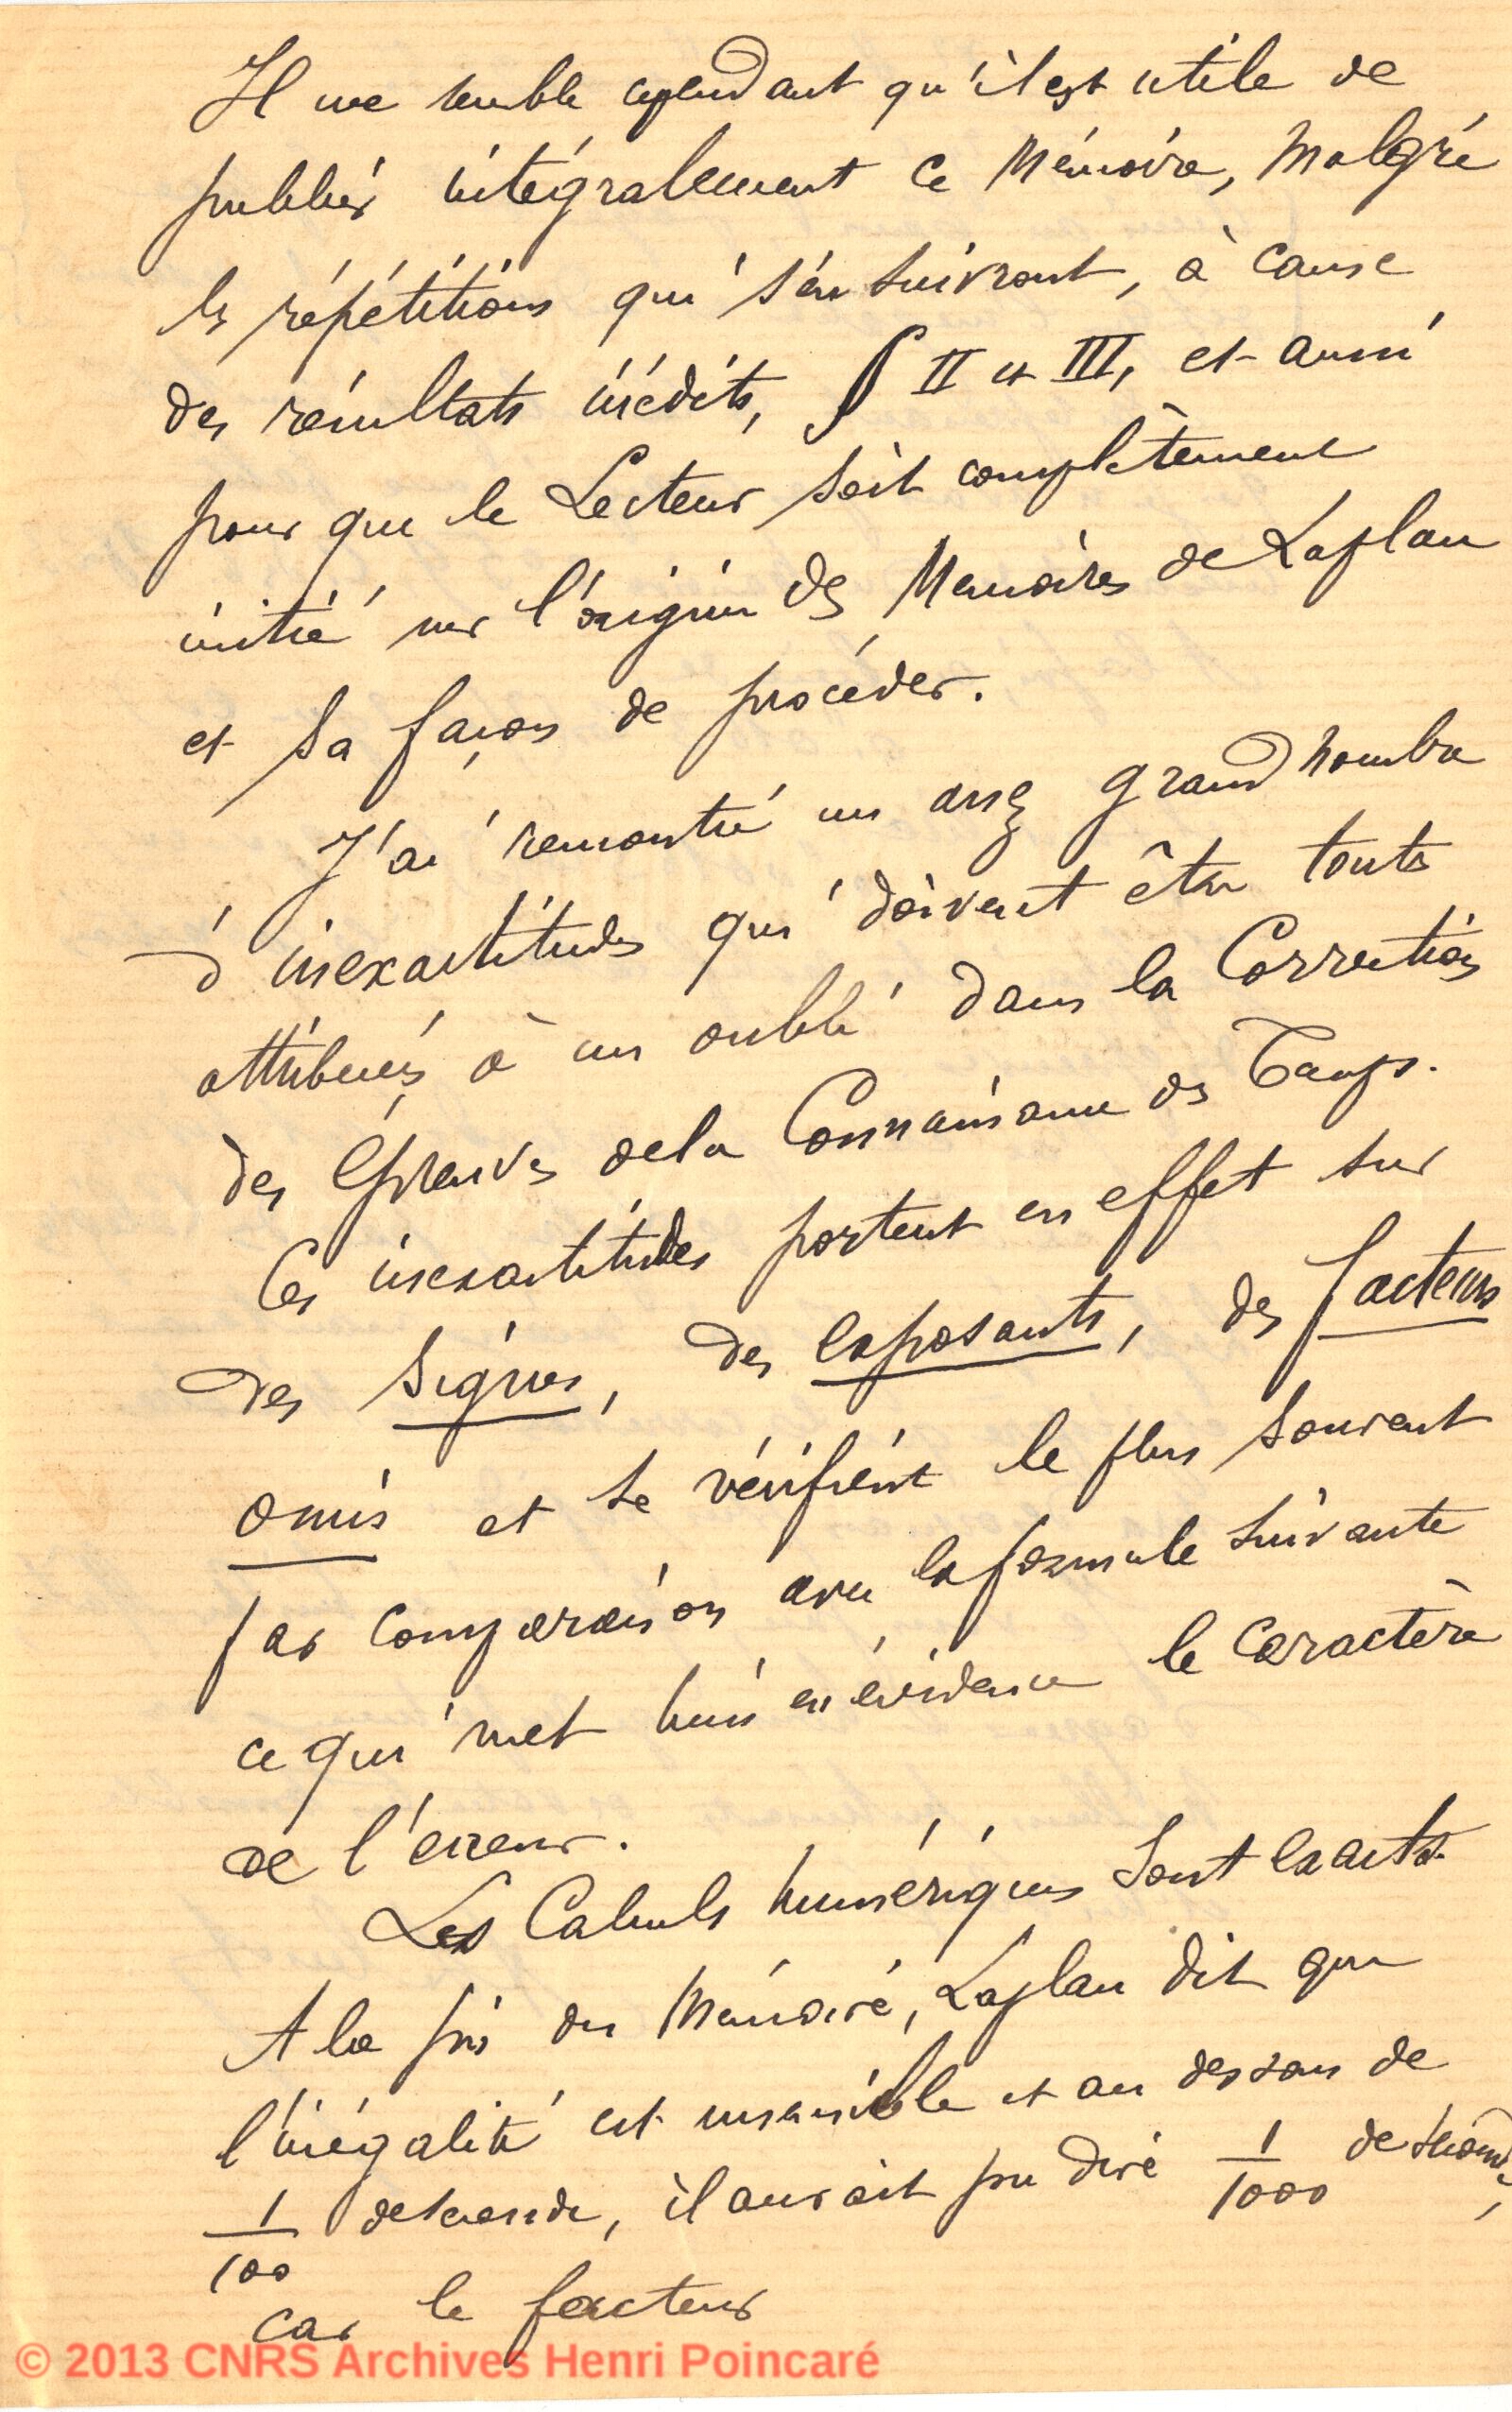 Il me semble cependant qu'il est utile de
publier intégralement ce Mémoire, malgré
les répétitions qui s'en suivront, à cause
des résultats inédits, § II et III, et aussi
pour que le Lecteur soit complètement
initié sur l'origine des Memoires de Laplace
et sa façon de procéder.
J'ai rencontré un assez grand nombre
d'inexactitudes qui doivent être toutes
attribuées à un oubli dans la Correction
des Épreuves de la Connaissance des Temps.
Ces inexactitudes portent en effet sur
des signes, des exposants, des facteurs
omis et se vérifient le plus souvent
par comparaison avec la formule suivante
ce qui met bien en évidence le caractère
de l'erreur.
Les Calculs numériques sont exacts.
A la fin du Mémoire, Laplace dit que
l'inégalité est insensible et au dessous de
1/100 de seconde, il aurait pu dire 1/1000 de seconde,
car le facteur
© 2013 CNRS Archives Henri Poincaré